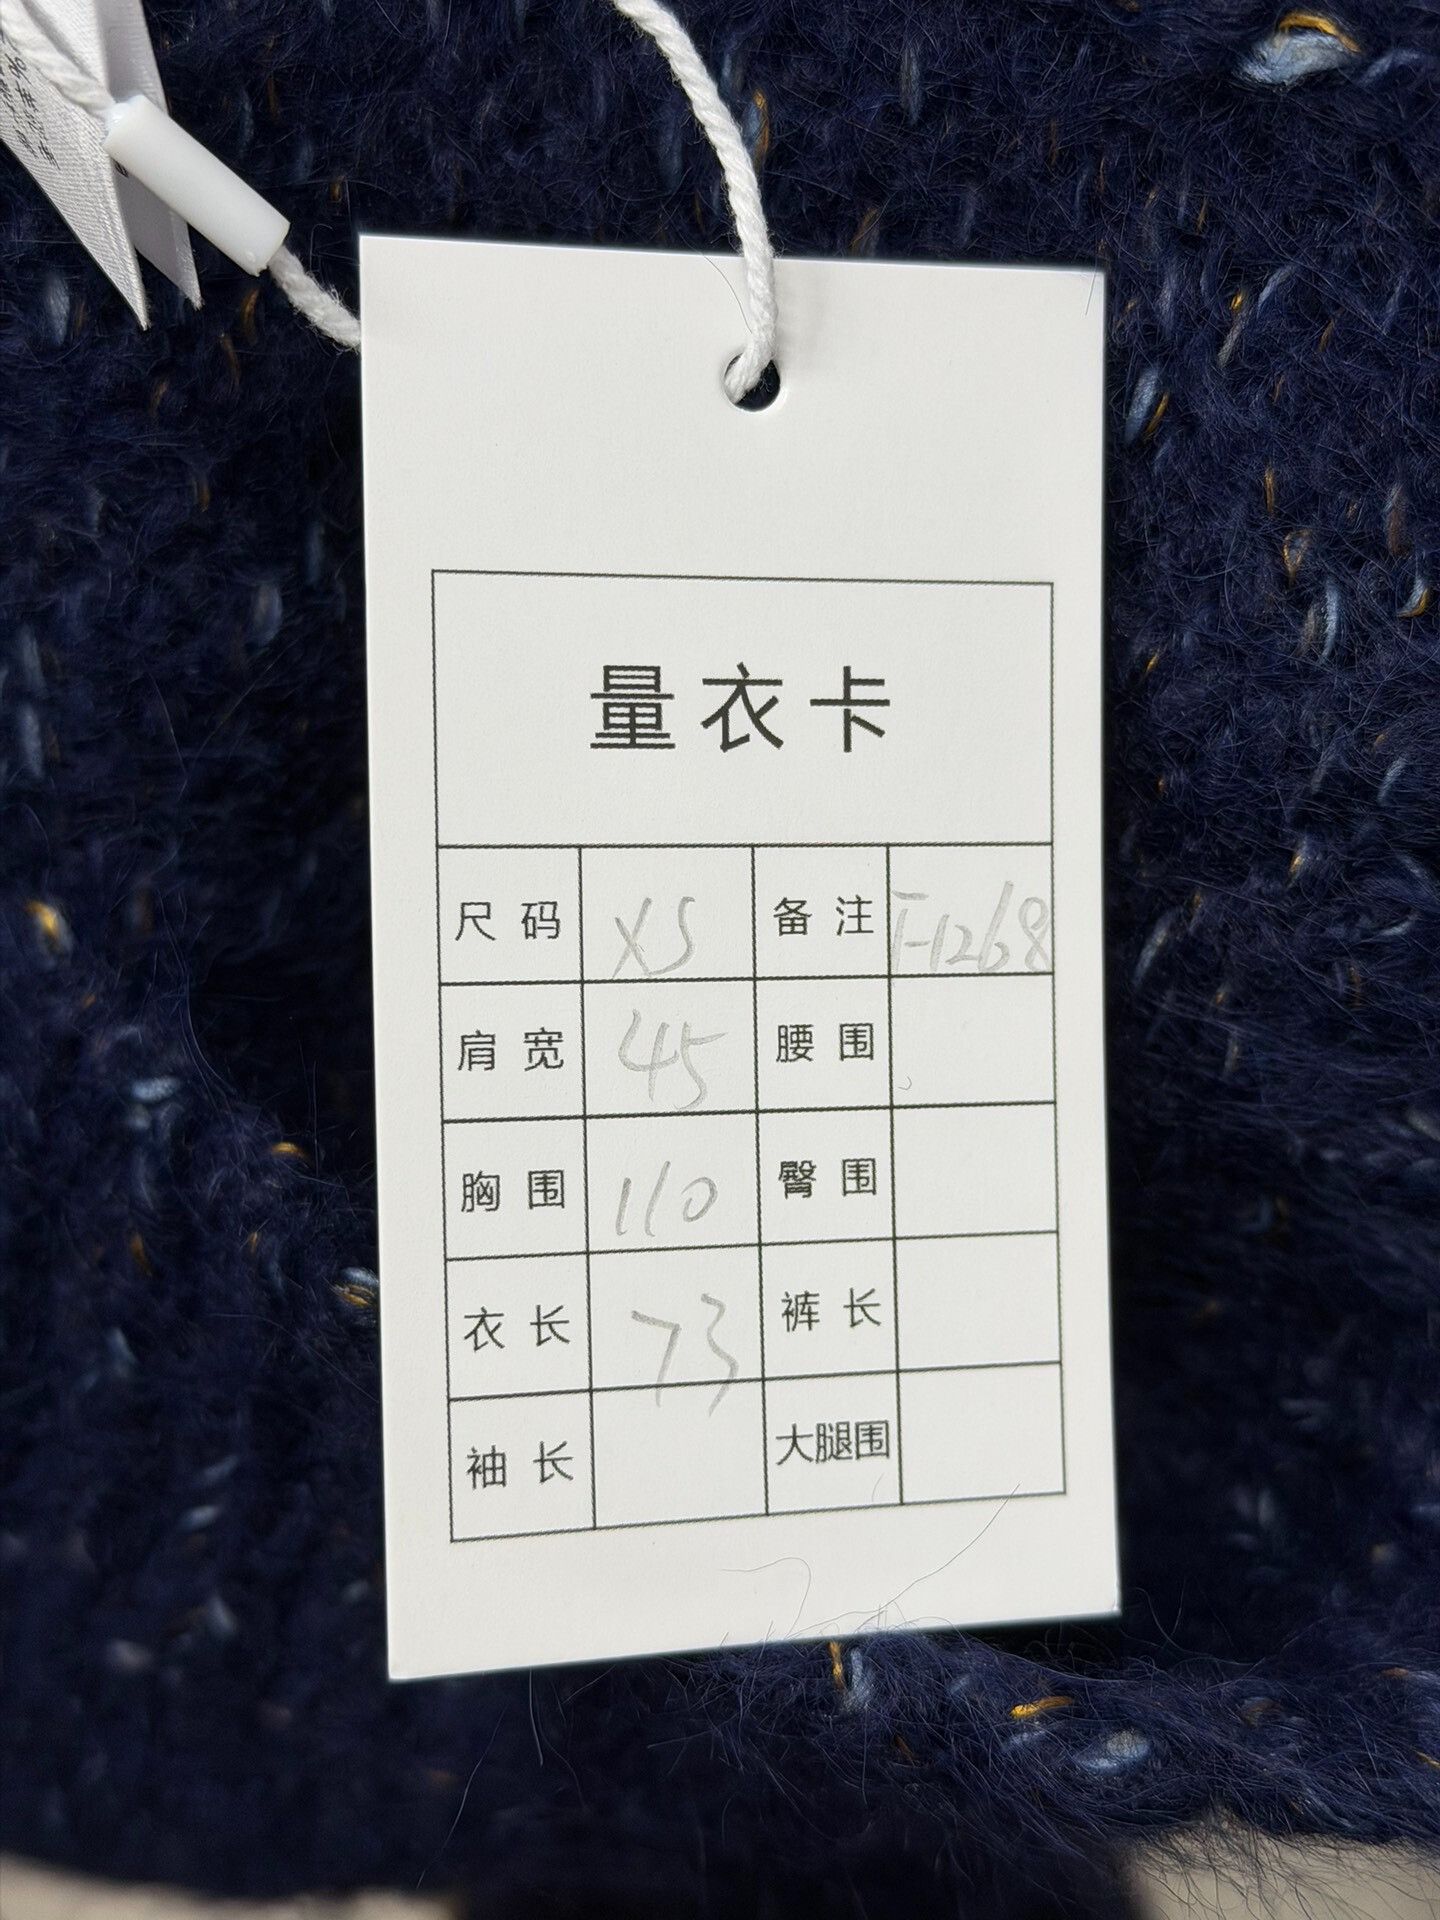 量衣卡
尺码 XS 备注 F-1268
肩宽 45 腰围
胸围 110 臀围
衣长 73 裤长
袖长 大腿围